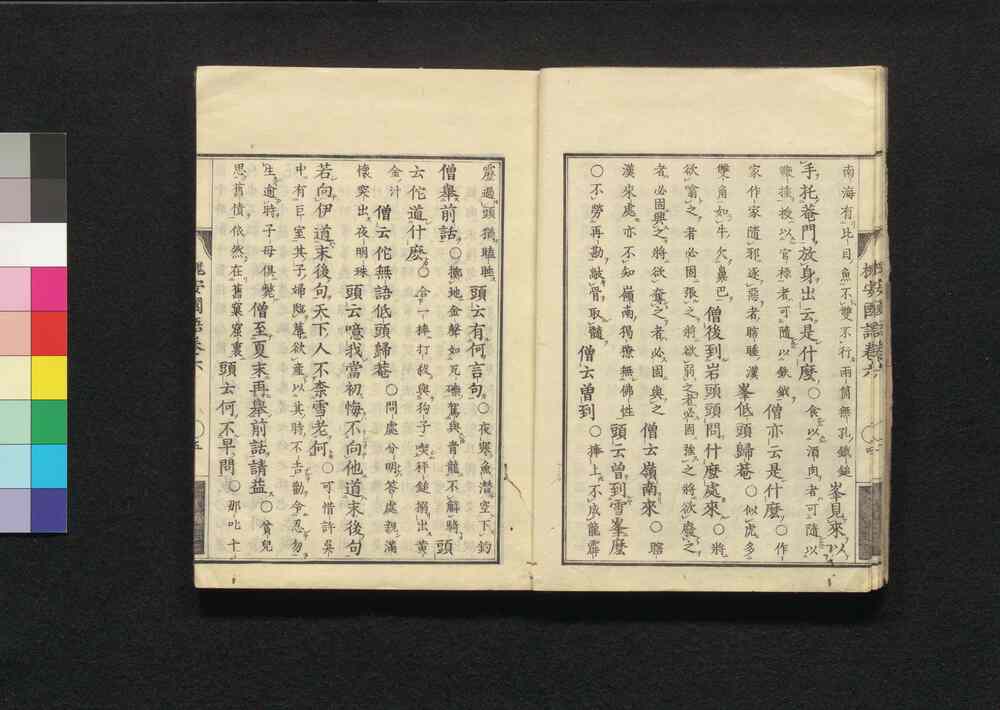 南海有比目魚不雙不行兩箇無孔鐵鎚 峯見來以
手托菴門放身出云是什麼〇食以酒肉者可隨以
鞭捶授以官祿者可隨以鈇鉞 僧亦云是什麼〇作
家作家隨邪逐惡者瞎睡漢 峯低頭歸菴〇似虎多
雙角如牛欠鼻巴 僧後到岩頭頭問什麼處來〇將
欲翕之者必固張之將欲弱之者必固強之將欲廢之
者必固興之將欲奪之者必固與之 僧云嶺南來〇瞎
漢來處亦不知嶺南獦獠無佛性 頭云曾到雪峯麼
〇不勞再勘敲骨取髓 僧云曾到〇捧上不成龍霹
槐安國語卷六
靂過頭猶瞌睡 頭云有何言句〇夜寒魚潛空下釣
僧舉前話〇擲地金聲如瓦礫駕與青龍不解騎 頭
云佗道什麼〇合一捧打殺與狗子喫秤鎚搦出黃
金汁 僧云佗無語低頭歸菴〇問處分明答處親滿
懷突出夜明珠 頭云噫我當初悔不向他道末後句
若向伊道末後句天下人不柰雪老何〇可惜許吳
中有巨室其子婦臨蓐欲產以其時不吉勸令忍勿
生逾時子母俱斃 僧至夏末再舉前話請益〇貧兒
思舊債依然在舊窠窟裏 頭云何不早問〇那叱十
槐安國語卷六 〇五